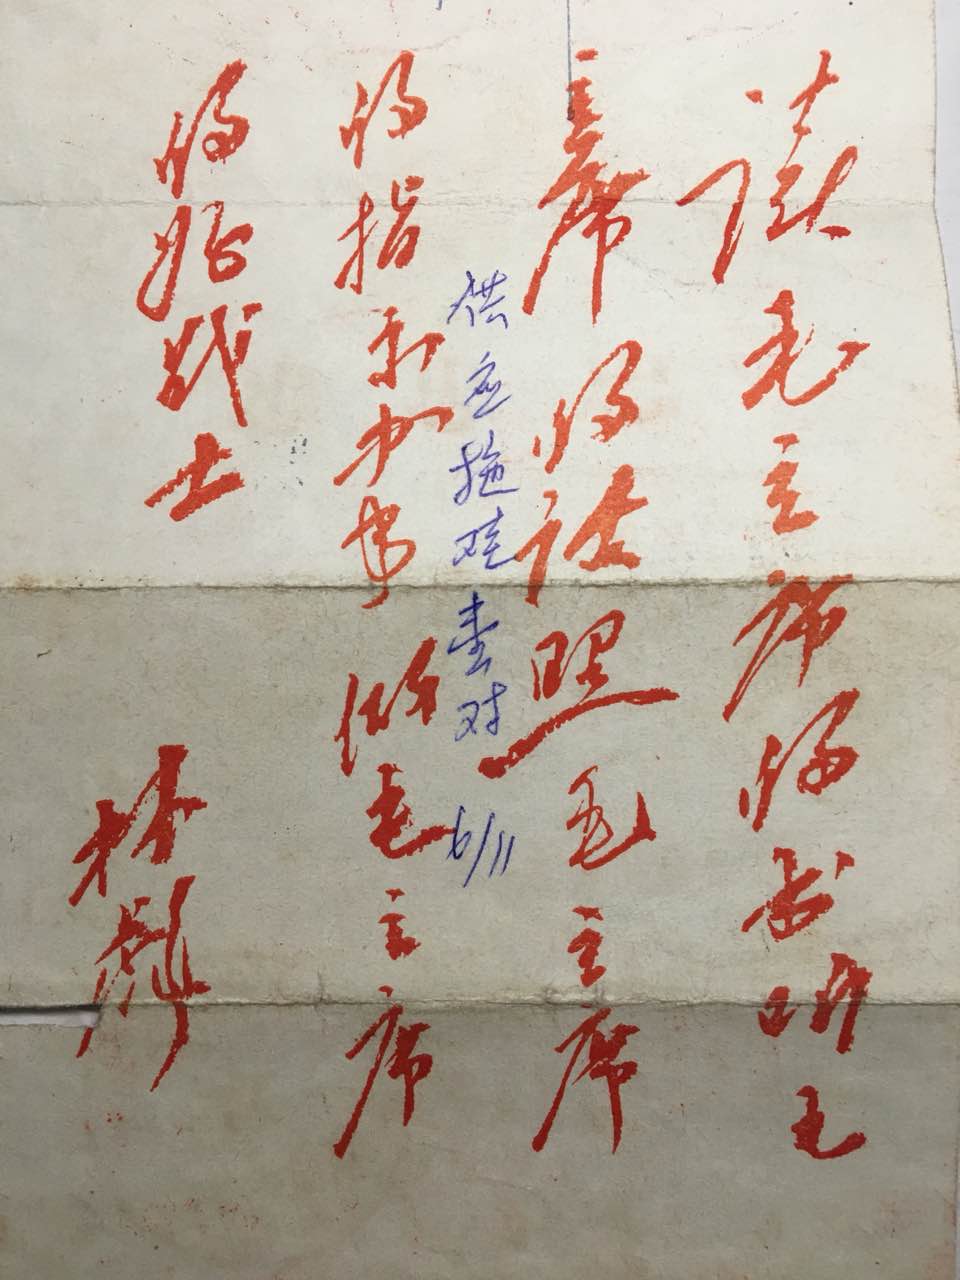 读毛主席的书听毛
主席的话照毛主席
供应拖鞋壹对 6/11
的指示办事做毛主席
的好战士
林彪